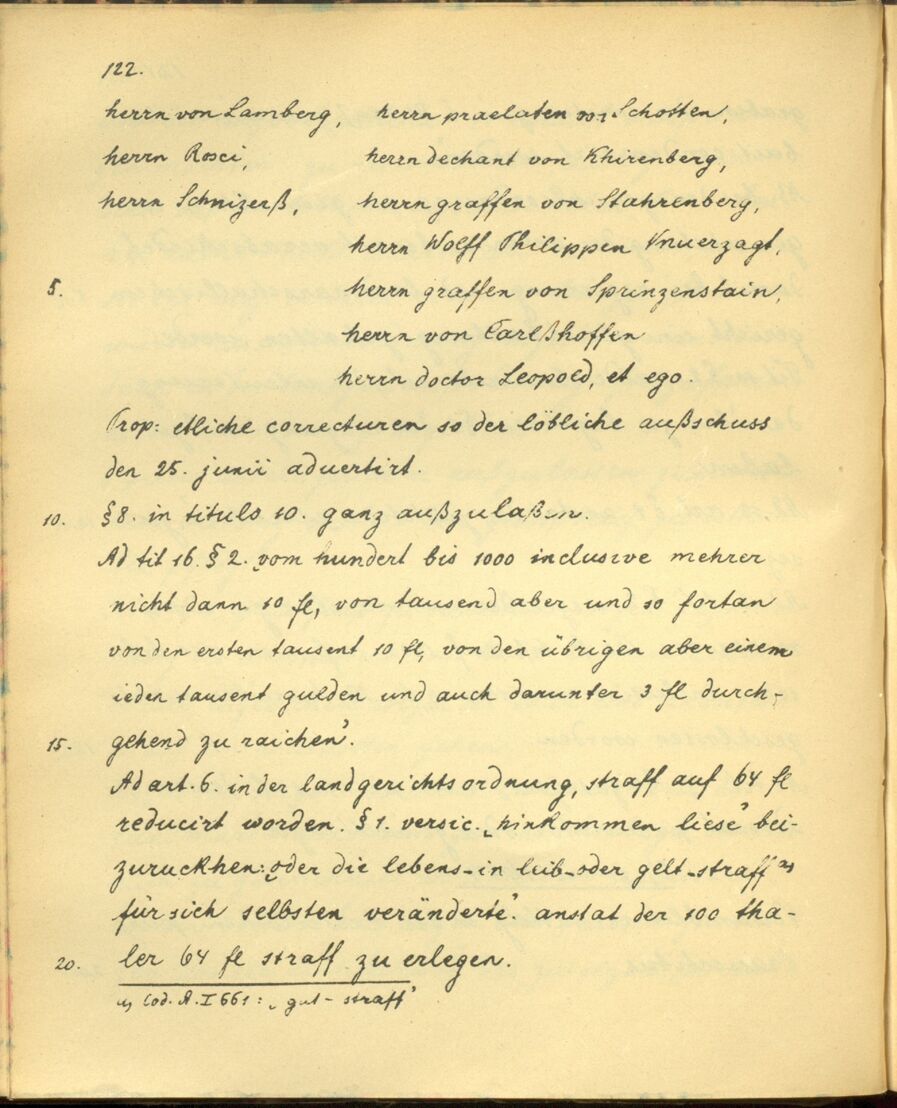 122.
herrn von Lamberg, herrn praelaten von Schotten,
herrn Rosci, herrn dechant von Khirenberg,
herrn Schnizerß, herrn graffen von Stahrenberg,
herrn Wolff Philippen Vnuerzagt,
5. herrn graffen von Sprinzenstain,
herrn von Carlßhoffen
herrn doctor Leopold, et ego.
Prop: etliche correcturen so der löbliche außschuss
den 25. junii aduertirt.
10. § 8. in titulo 10. ganz außzulaßen.
Ad tit 16. § 2. „vom hundert bis 1000 inclusive mehrer
nicht dann 10 fl, von tausend aber und so fortan
von den ersten tausent 10 fl, von den übrigen aber einem
ieden tausent gulden und auch darunter 3 fl durch-
15. gehend zu raichen".
Ad art. 6. in der landgerichtsordnung, straff auf 64 fl
reducirt worden. § 1. versic. „hinkommen liese" bei-
zuruckhen: „oder die lebens- in leib- oder gelt-straff a)
für sich selbsten veränderte". anstat der 100 tha-
20. ler 64 fl straff zu erlegen.
a) Cod. A. I 661: „gut-straff"